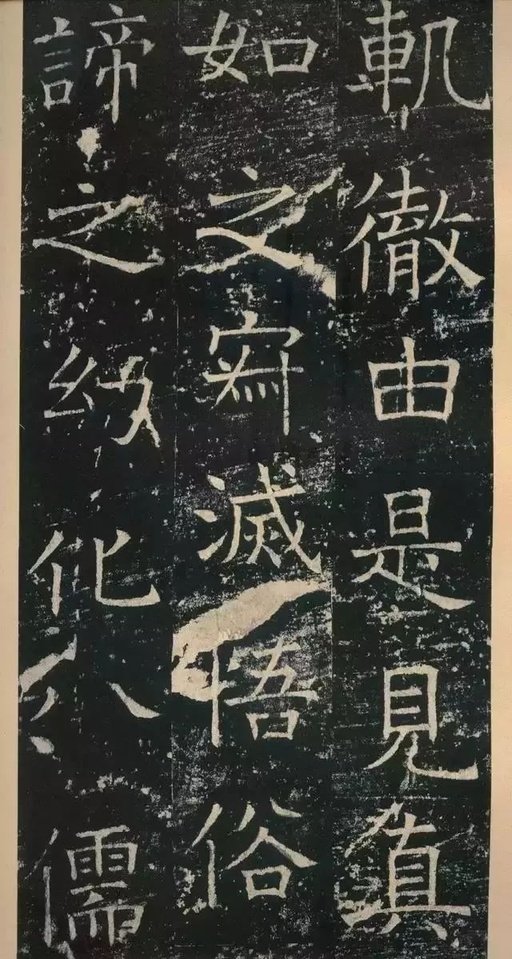 軌徹由是見真
如之寂滅悟俗
諦之幻化以儒